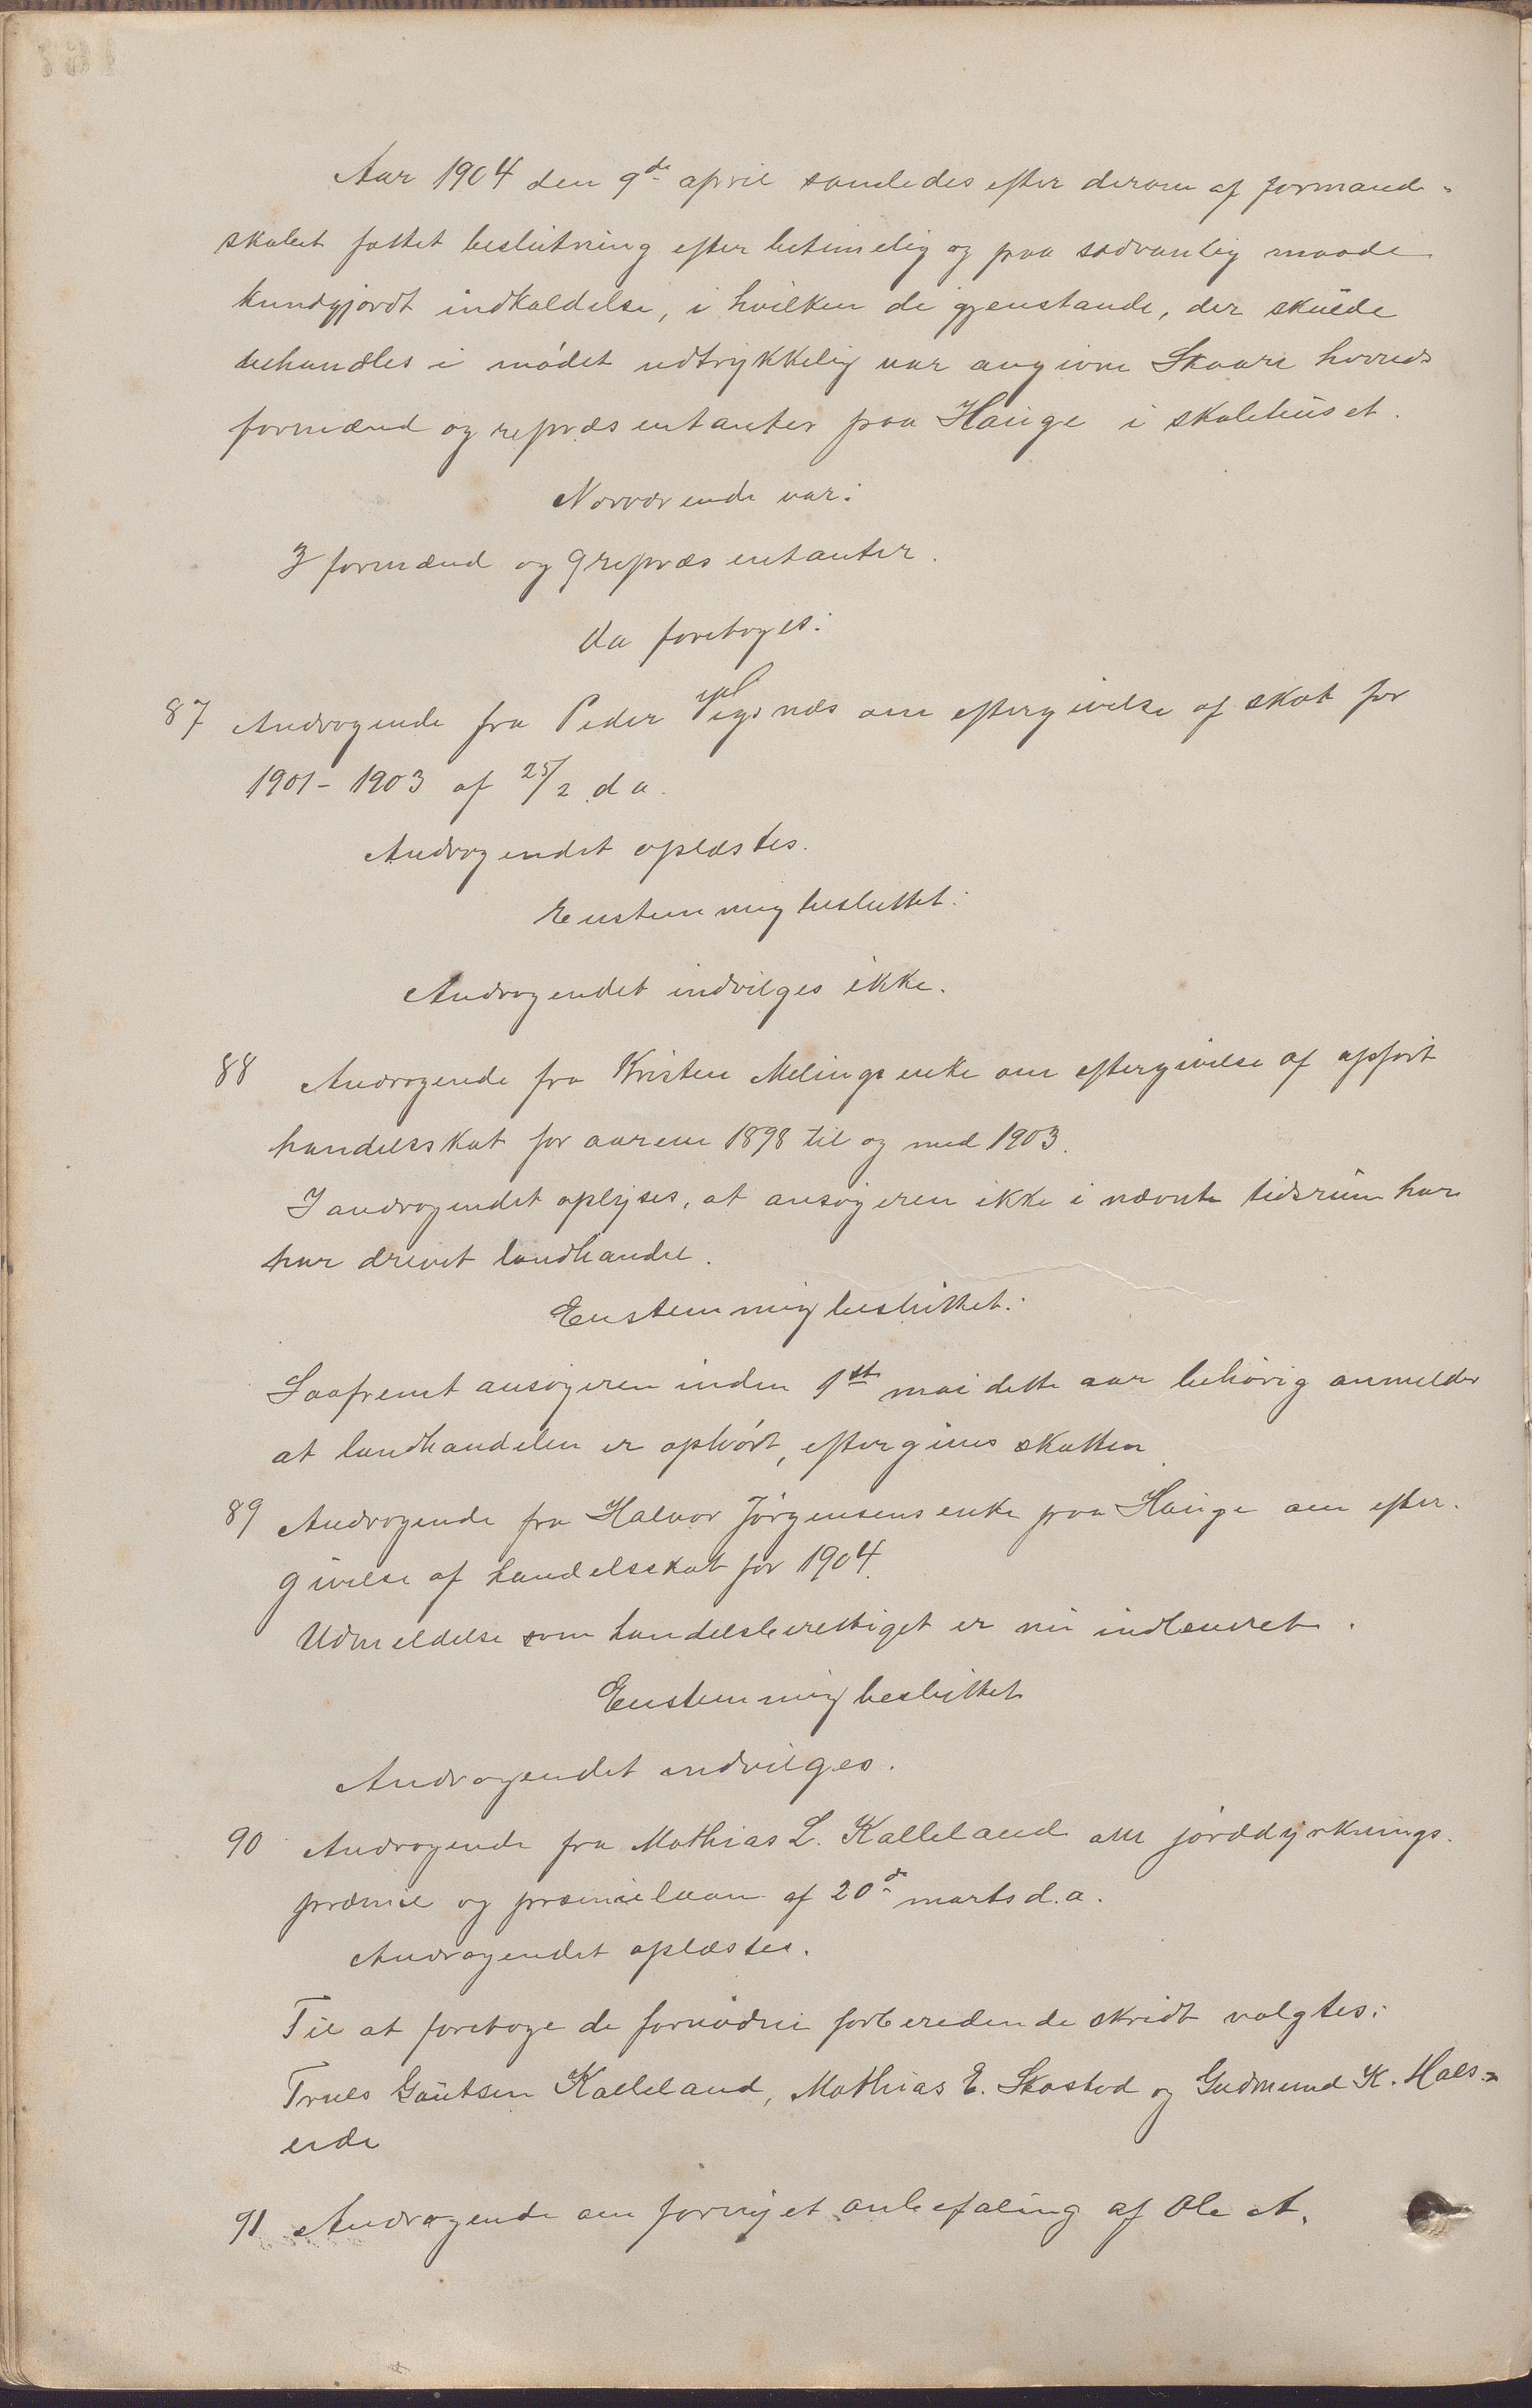 Aar 1904 den 9de april samledes efter derom af formand-
skabet fattet beslutning efter betimelig og paa sædvanlig maade
kundgjordt indkaldelse, i hvilken de gjenstande, der skulde
behandles i mødet udtrykkelig var angivne Skaare herreds
formænd og repræsentanter paa Hauge i skolehuset.
Nærværende var:
3 formænd og 9 repræsentanter.
Da foretoges:
87 Andragende fra Peder Vigsnæs om eftergivelse af skat for
1901 - 1903 af 25/2 d a.
Andragendet oplæstes.
Enstemmig besluttet:
Andragendet indvilges ikke.
88 Andragende fra Kristen Melings enke om eftergivelse af opført
handelsskat for aarene 1898 til og med 1903.
I andragendet oplyses, at ansøgeren ikke i nævnte tidsrum har
har drevet landhandel.
Enstemmig besluttet:
Saafremt ansøgeren inden 1ste mai dette aar behørig anmelder
at landhandelen er ophørt, eftergives skatten
89 Andragende fra Halvor Jørgensens enke paa Hauge om efter-
givelse af handelsskat for 1904.
Udmeldelse som handelsberettiget er nu indleveret.
Enstemmig besluttet
Andragendet indvilges.
90 Andragende fra Mathias L. Kalleland om jorddyrknings-
præmie og præmielaan af 20de marts d.a.
Andragendet oplæstes.
Til at foretage de fornødne forberedende skridt valgtes:
Truls Gautsen Kalleland, Mathias E. Skastad og Gudmund K. Hals-
eide
91 Andragende om fornyet anbefaling af Ole A.